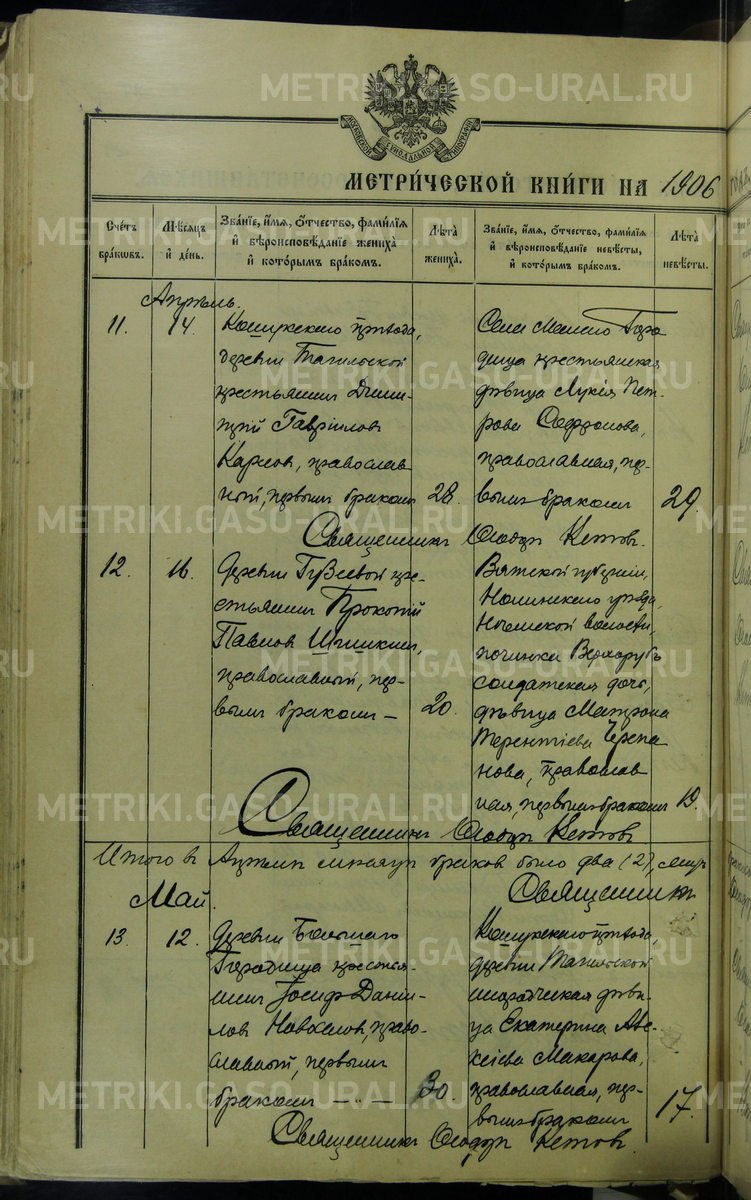 METRIKI.GASO-URAL.RU
МОСКОВСКОЙ СѴНОДАЛЬНОЙ ТИПОГРАФІИ
МЕТРИ́ЧЕСКОЙ КНИ́ГИ НА 1906
Сче́тъ бра́кѡвъ.
Мѣ́сяцъ и҆ де́нь.
Зва́нїе, и҆́мя, ѻ҆́тчество, фами́лїѧ и҆ вѣроисповѣ́данїе жениха̀ и҆ кото́рымъ бра́комъ.
Лѣ́та жениха̀.
Зва́нїе, и҆́мя, ѻ҆́тчество, фами́лїѧ и҆ вѣроисповѣ́данїе невѣ́сты, и҆ кото́рымъ бра́комъ.
Лѣ́та невѣ́сты.
Апрѣль.
11.
14.
прихода,
деревни Тагильской
крестьянинъ Дими-
трій Гавріиловъ
Карповъ, православ
ный, первымъ бракомъ
28.
Села Малаго Горо
дища крестьянская
дѣвица Лукія Пет-
рова Сафронова,
православная, пер-
вымъ бракомъ
29
Священникъ Ѳеодоръ Кетовъ.
12.
16.
Деревни Гузеевой кре-
стьянинъ Прокопій
Павловъ Шишкинъ,
православный, пер-
вымъ бракомъ —
20.
Вятской губерніи,
Нолинскаго уѣзда,
волости,
починка
солдатская дочь,
дѣвица Матрона
Терентіева Черепа
нова, православ
ная, первымъ бракомъ
19.
Священникъ Ѳеодоръ Кетовъ
Итого въ Апрѣлѣ мѣсяцѣ браковъ было два (2),
Священникъ
Май.
13.
12.
Деревни Большаго
Городища крестья-
нинъ Іосифъ Даніи-
ловъ Новоселовъ, право-
славный, первымъ
бракомъ — — —
30.
прихода,
деревни Тагильской
инородческая дѣви-
ца Екатерина Алек-
сіева Макарова,
православная, пер-
вымъ бракомъ
17.
Священникъ Ѳеодоръ Кетовъ.